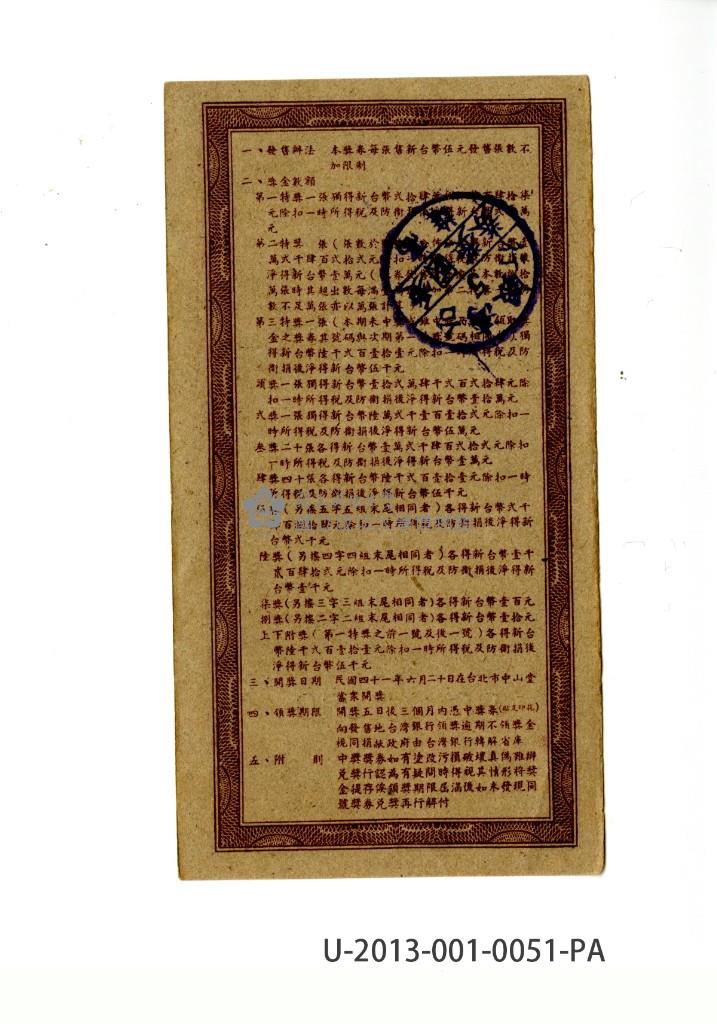 一、發售辦法　本獎券每張售新台幣伍元發售張數不
加限制
二、獎金數額
第一特獎一張獨得新台幣弍拾肆萬
元除扣一時所得稅及防衛
元
第二特獎　張(張數於
萬弍千肆百弍拾弍元
淨得新台幣壹萬元(
萬張時其超出數每滿
數不足萬張亦以萬張計
第三特獎一張(本期未中
金之獎券其號碼與次期第一
得新台幣陸千弍百壹拾壹元除扣一時得稅及防
衛捐後淨得新台幣伍千元
頭獎一張獨得新台幣壹拾弍萬肆千弍百弍拾肆元除
扣一時所得稅及防衛捐後淨得新台幣壹拾萬元
弍獎一張獨得新台幣陸萬弍千壹百壹拾弍元除扣一
時所得稅及防衛捐後淨得新台幣伍萬元
叁獎二十張各得新台幣壹萬弍千肆百弍拾弍元除扣
一時所得稅及防衛捐後淨得新台幣壹萬元
肆獎四十張各得新台幣陸千弍百壹拾壹元除扣一時
所得稅及防衛捐後淨得新台幣伍千元
伍獎(另搖五字五組末尾相同者)各得新台幣弍千
百捌拾肆元除扣一時所得稅及防衛捐後淨得新
台幣弍千元
陸獎(另搖四字四組末尾相同者)各得新台幣壹千
貳百肆拾弍元除扣一時所得稅及防衛捐後淨得新
台幣壹千元
柒獎(另搖三字三組末尾相同者)各得新台幣壹百元
捌獎(另搖二字二組末尾相同者)各得新台幣拾元
上下附獎(第一特獎之前一號及後一號)各得新台
幣陸千弍百壹拾壹元除扣一時所得稅及防衛捐後
淨得新台幣伍千元
三、開獎日期　民國四十一年六月二十日在台北市中山堂
當衆開獎
四、領獎期限　開獎五日後三個月內憑中獎券(貼足印花)
向發售地台灣銀行領獎逾期不領獎金
視同捐献政府由台灣銀行轉解省庫
五、附　則　中獎獎券如有塗改污損破壞真偽難辦
兌獎行認為有疑問時得視其情形將獎
金提存候領獎期限屆滿後如未發現同
號獎券兌獎再行解付
U-2013-001-0051-PA